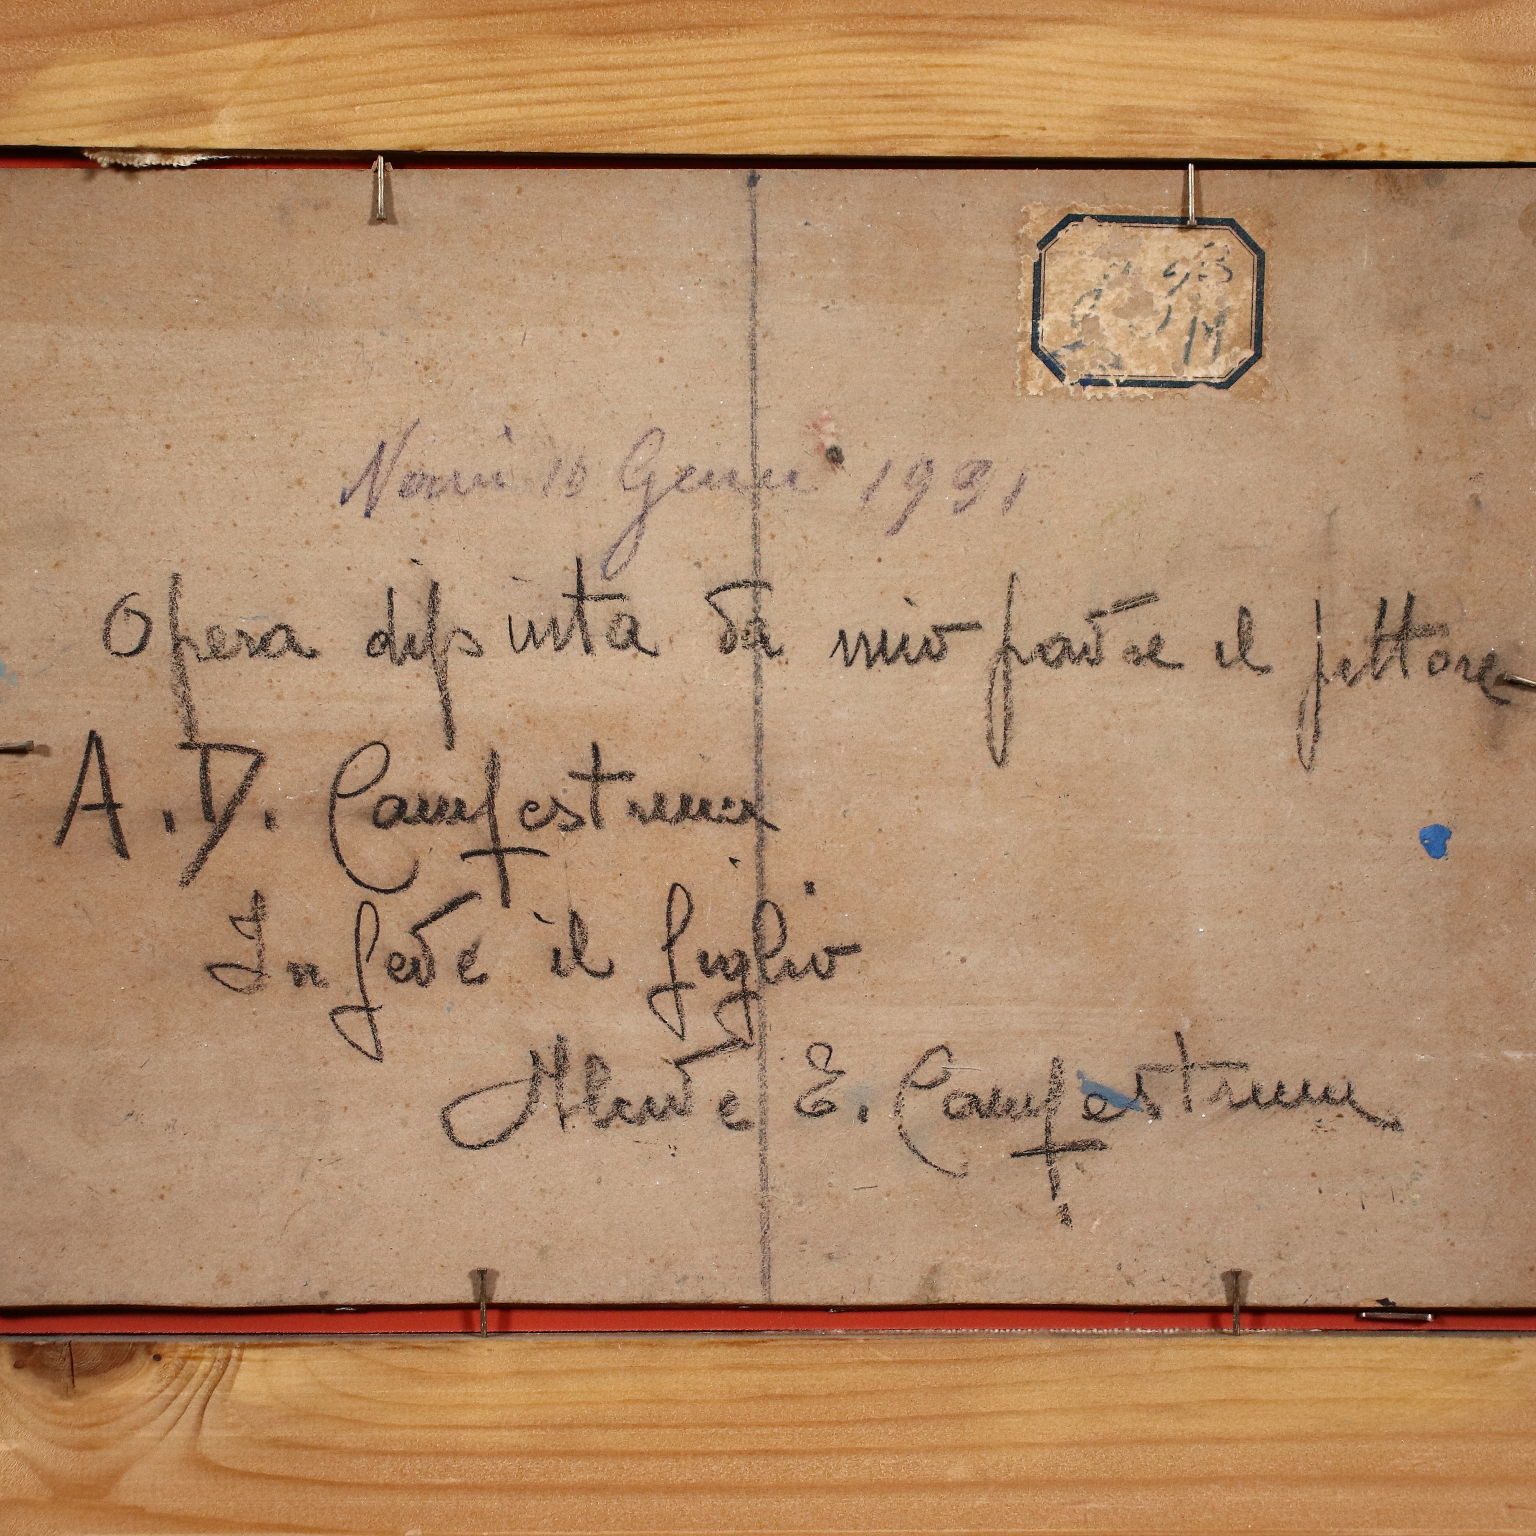 1931
Opera dipinta da mio padre il pittore
A. D. Campestrini
In fede il figlio
Alcide E. Campestrini